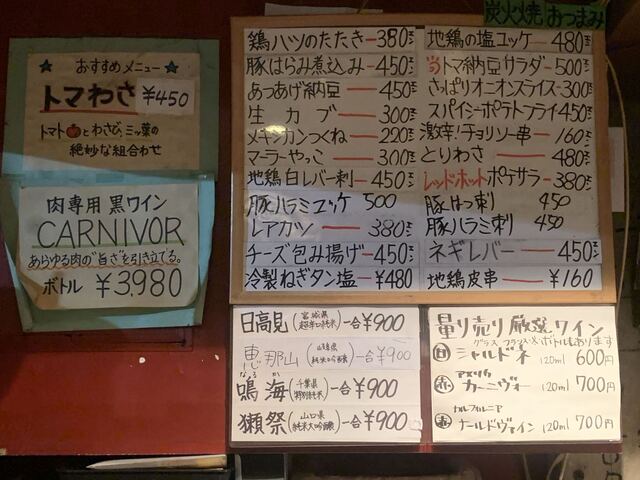 炭火焼 おつまみ
★ おすすめメニュー ★
トマわさ ¥450
トマトとわさび、三ッ葉の
絶妙な組合わせ
肉専用 黒ワイン
CARNIVOR
あらゆる肉の"旨さ"を引き立てる。
ボトル ¥3,980
鶏ハツのたたき ー 380
豚はらみ煮込み ー 450
あつあげ納豆 ー 450
生カブ ー 300
メキシカンつくね ー 220
マーラーやっこ ー 300
地鶏白レバー刺 ー 450
豚ハラミユッケ 500
レアカツ ー 380
チーズ包み揚げ ー 450
冷製ねぎタン塩 ー ¥480
地鶏の塩ユッケ ー 480
トマト納豆サラダ ー 500
さっぱりオニオンスライス ー 300
スパイシーポテトフライ 450
激辛!チョリソー串 ー 160
とりわさ ー 480
レッドホットポテサラ ー 380
豚はつ刺 450
豚ハラミ刺 450
ネギレバー ー 450
地鶏皮串 ー ¥160
日高見(宮城県 超辛口純米)一合 ¥900
恵那山(純米吟醸)一合 ¥900
なるか
鳴海(千葉県 特別純米)一合 ¥900
獺祭(山口県 純米大吟醸)一合 ¥900
量り売り厳選ワイン
グラス ボトルもあります
白 シャルドネ 120ml 600円
アメリカ
赤 カーニヴォー 120ml 700円
カルフォルニア
赤 ナールドヴァイン 120ml 700円